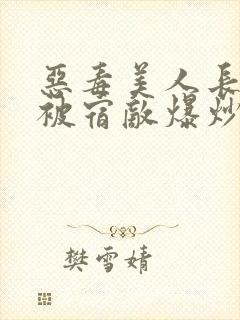 惡毒美人長
被宿敵爆炒
樊雪婧